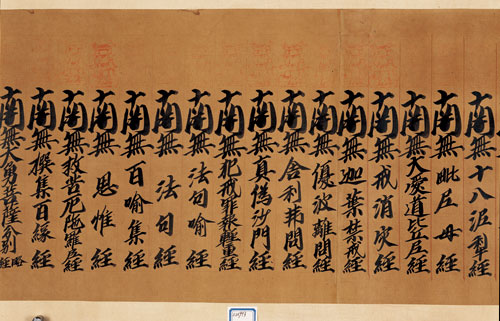 南無十八泥犁經
南無毗尼母經
南無大愛道比丘尼經
南無戒消灾經
南無迦葉禁戒經
南無優波離問經
南無舍利弗問經
南無真偽沙門經
南無犯戒罪報輕重經
南無法句喻經
南無法句經
南無百喻集經
南無思惟經
南無救苦厄陁羅尼經
南無撰集百緣經
南無大勇菩薩分別略經